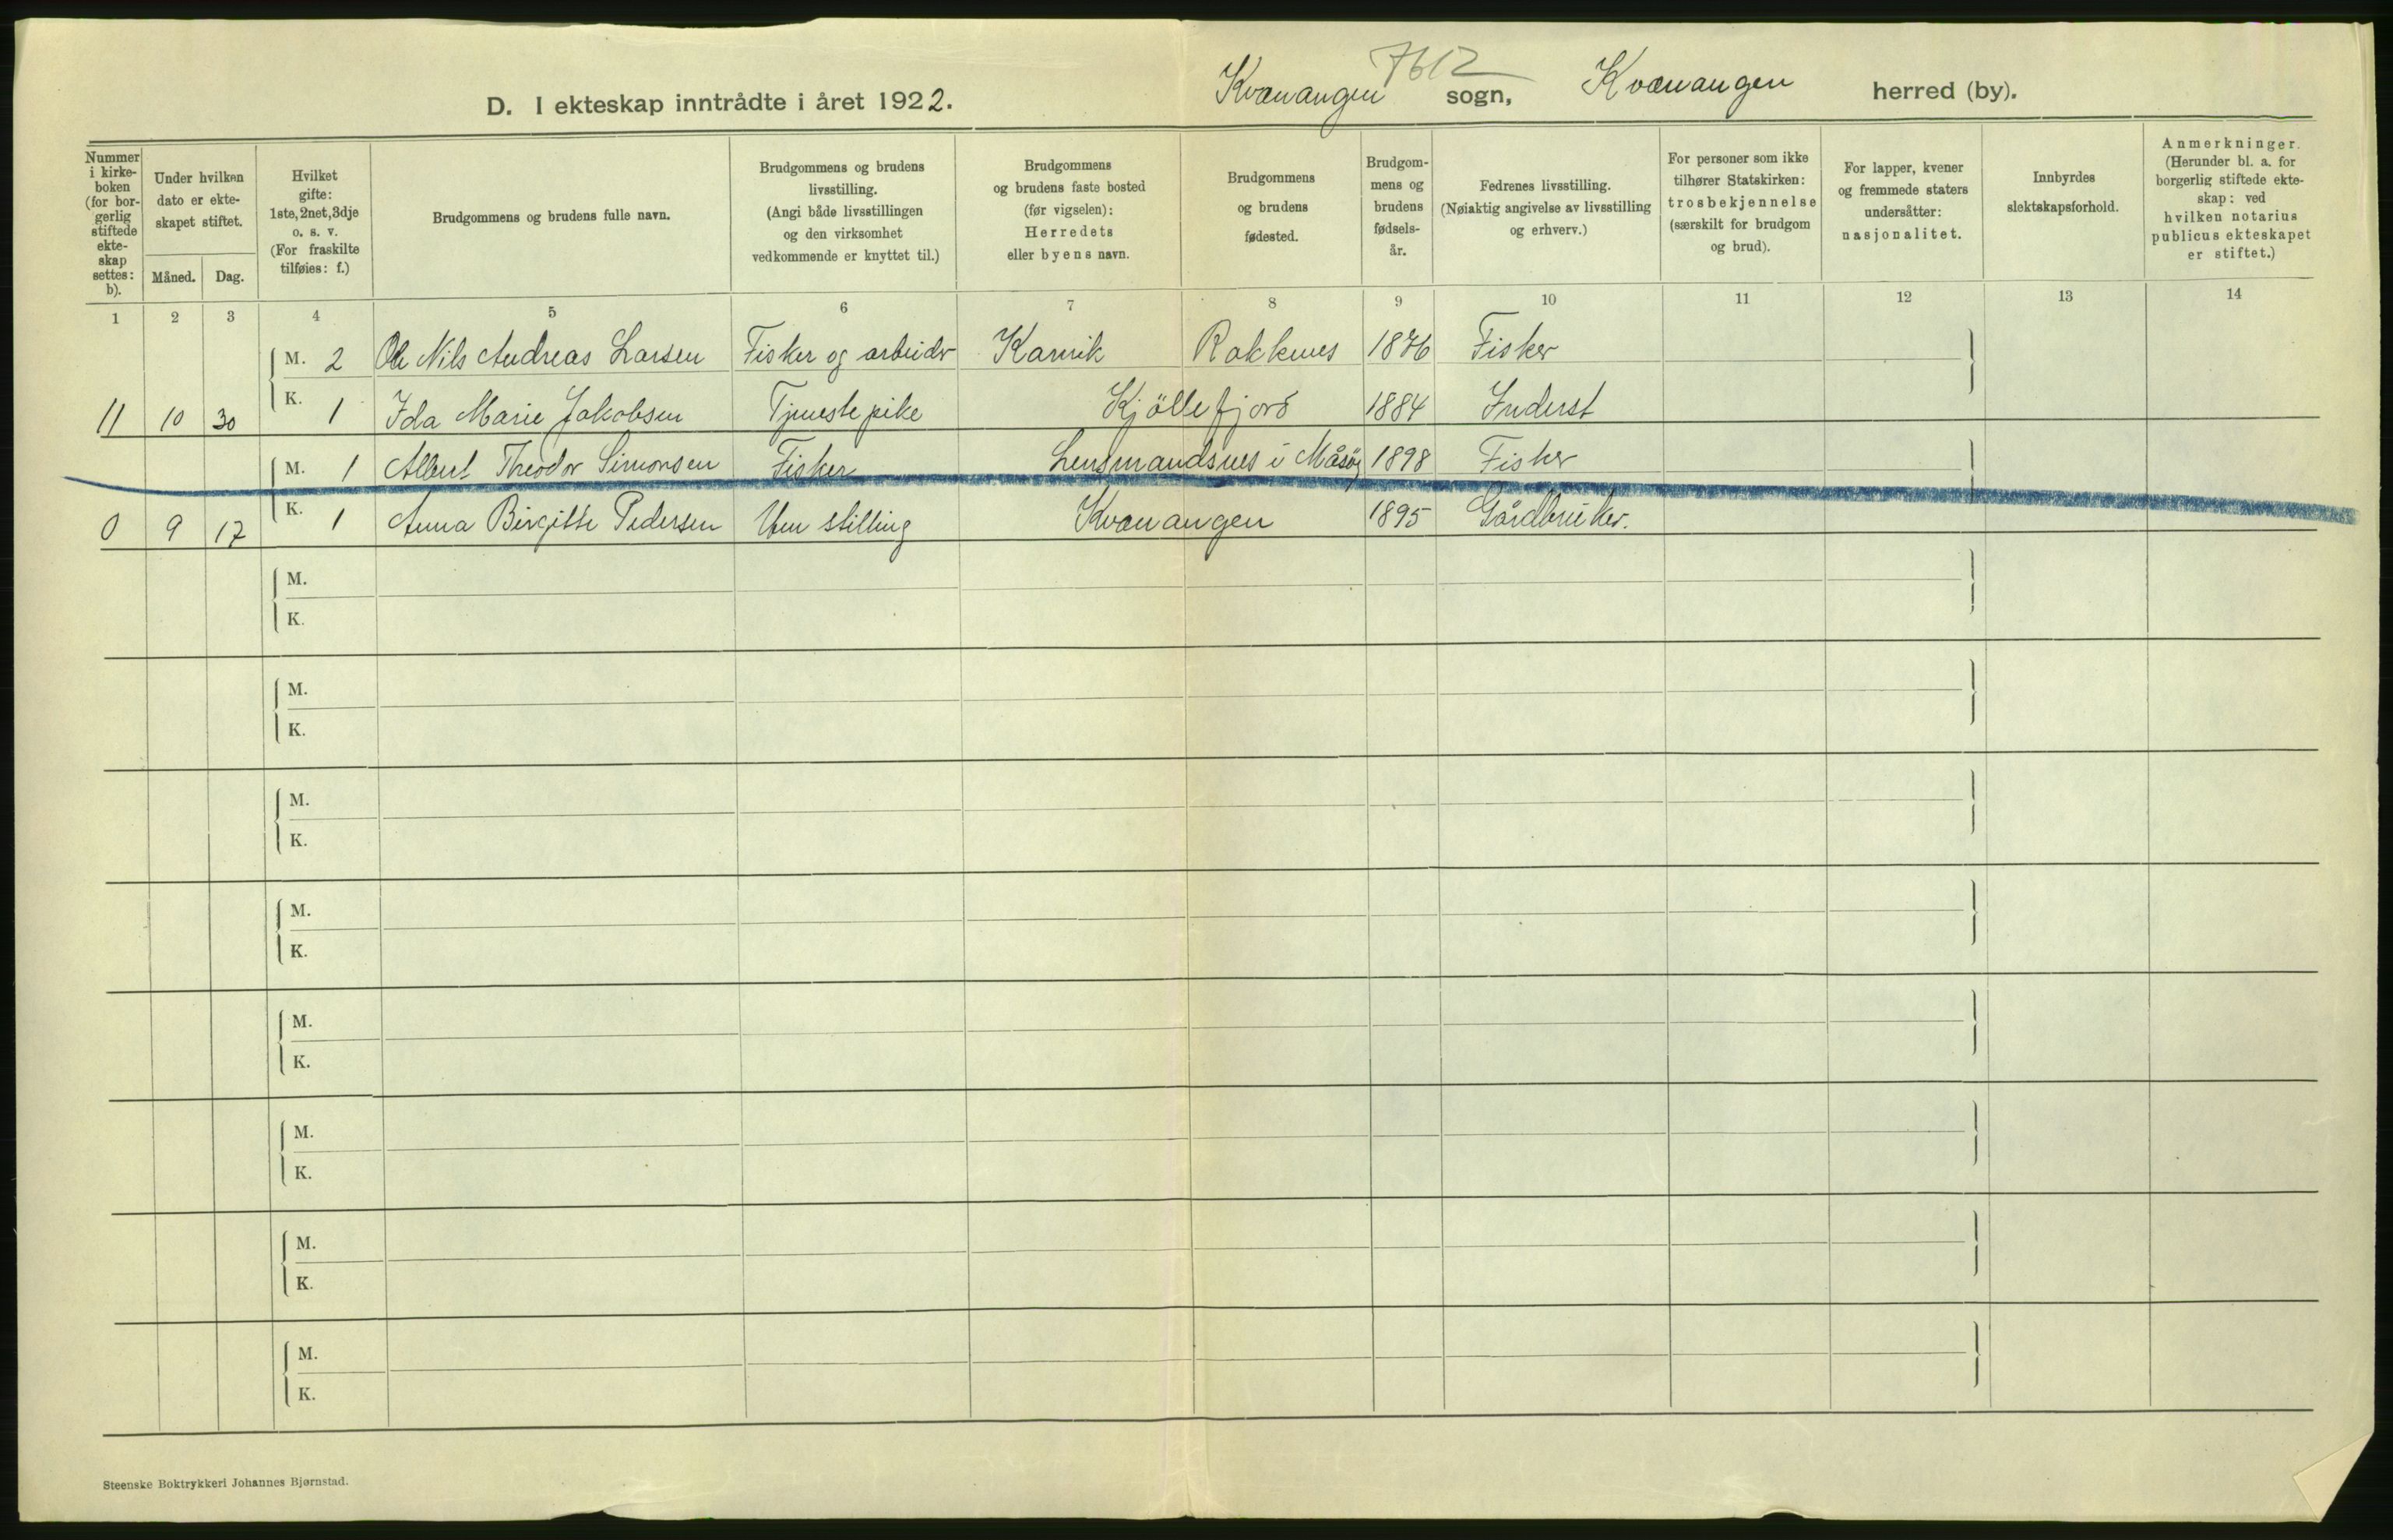 7612
D. I ekteskap inntrådte i året 1922. Kvænangen sogn, Kvænangen herred (by).
Nummer i kirke-boken (for bor-gerlig stiftede ekte-skap settes: b).
Under hvilken dato er ekte-skapet stiftet.
Måned. Dag.
Hvilket gifte: 1ste, 2net, 3dje o. s. v. (For fraskilte tilføies: f.)
Brudgommens og brudens fulle navn.
Brudgommens og brudens livsstilling. (Angi både livsstillingen og den virksomhet vedkommende er knyttet til.)
Brudgommens og brudens faste bosted (før vigselen): Herredets eller byens navn.
Brudgommens og brudens fødested.
Brudgom-mens og brudens fødsels-år.
Fedrenes livsstilling. (Nøiaktig angivelse av livsstilling og erhverv.)
For personer som ikke tilhører Statskirken: trosbekjennelse (særskilt for brudgom og brud).
For lapper, kvener og fremmede staters undersåtter: nasjonalitet.
Innbyrdes slektskapsforhold.
Anmerkninger. (Herunder bl. a. for borgerlig stiftede ekte-skap: ved hvilken notarius publicus ekteskapet er stiftet.)
1 2 3 4 5 6 7 8 9 10 11 12 13 14
M. 2 Ole Nils Andreas Larsen Fisker og arbeider Karvik Rakkenes 1876 Fisker
11 10 30 K. 1 Ida Marie Jakobsen Tjenestepike Kjøllefjord 1884 Inderst
M. 1 Albert Theodor Simonsen Fisker Lensmandsnes i Måsøy 1898 Fisker
0 9 17 K. 1 Anna Birgitte Pedersen Uten stilling Kvænangen 1895 Gårdbruker.
M.
K.
M.
K.
M.
K.
M.
K.
M.
K.
M.
K.
M.
K.
M.
K.
Steenske Boktrykkeri Johannes Bjørnstad.